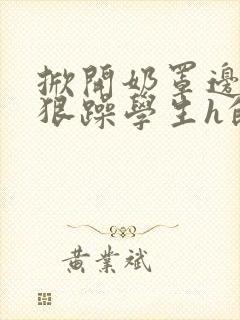 掀開奶罩邊
狠躁學生h
黃業斌